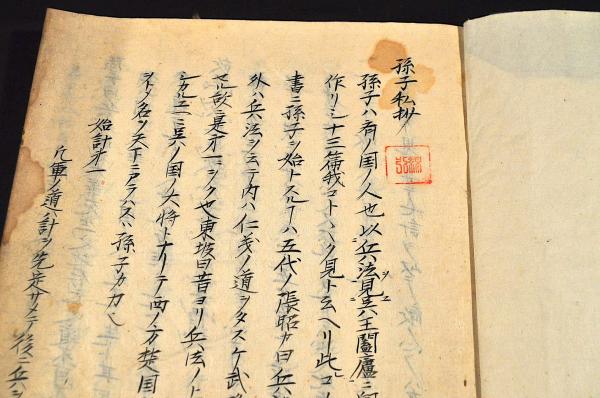 孫子私抄
孫子ハ斉ノ国ノ人也以兵法見呉王闔廬ニ
作リシ十三篇我コトヽク見ト云ヘリ此コ
書ニ孫子ヲ始トスルヿハ五代ノ張昭カ曰兵
外ハ兵法ヲ云テ内ハ仁義ノ道ヲタスケ武
セル故ニ是才一ニヲク也東坡曰昔ヨリ兵法ノト
シカルニ呉ノ国ノ大将トナリテ西ノ方楚国
名ヲ天下ニアラハスハ孫子カ力也
始計才一
凡軍ノ道ハ計ヲ先定サメテ後ニ兵ヲ